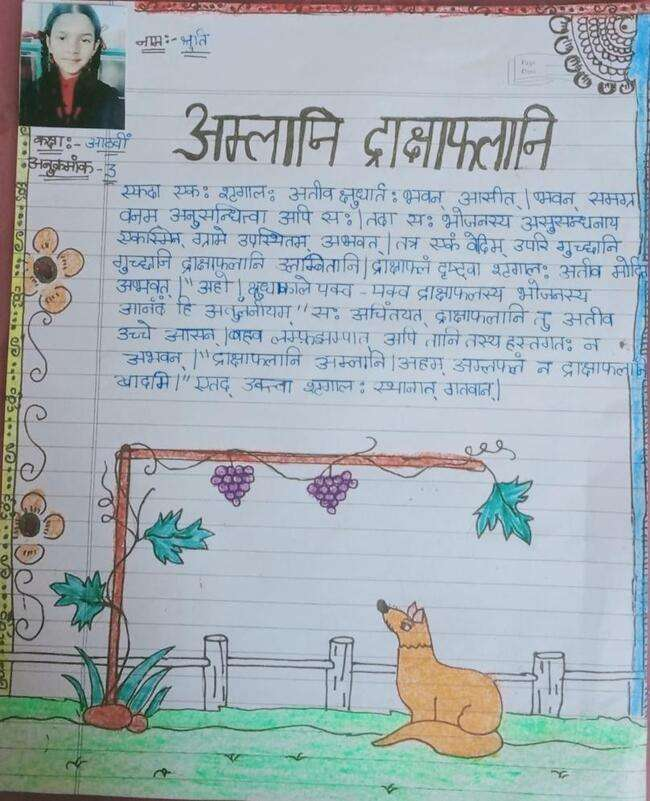 नाम:- श्रुति
कक्षा:- आठवीं
अनुक्रमांक - 3
अम्लानि द्राक्षाफलानि
एकदा एक: शृगाल: अतीव क्षुधार्त: भवन् आसीत् | भवन् समग्र
वनम अनुसन्धित्वा अपि स: | तदा स: भोजनस्य अनुसन्धनाय
एकस्मिन् ग्रामे उपस्थितम् अभवत् | तत्र एकं वेदिम् उपरि गुच्छानि
गुच्छानि द्राक्षाफलानि आलम्बितानि | द्राक्षाफलं दृष्ट्वा शृगाल: अतीव
अभवत् | "अहो | क्षुधाकाले पक्व - पक्व द्राक्षाफलस्य भोजनस्य
आनंदं हि अतुलनीयम् " स: अचिंतयत् द्राक्षाफलानि तु अतीव
उच्चे आसन् | बहव अपि तानि तस्य हस्तगत: न
अभवन् | "द्राक्षाफलानि अम्लानि | अहम् अम्लफलं न द्राक्षाफलानि
खादामि |" एतद् उक्त्वा शृगाल: स्थानात् गतवान् |